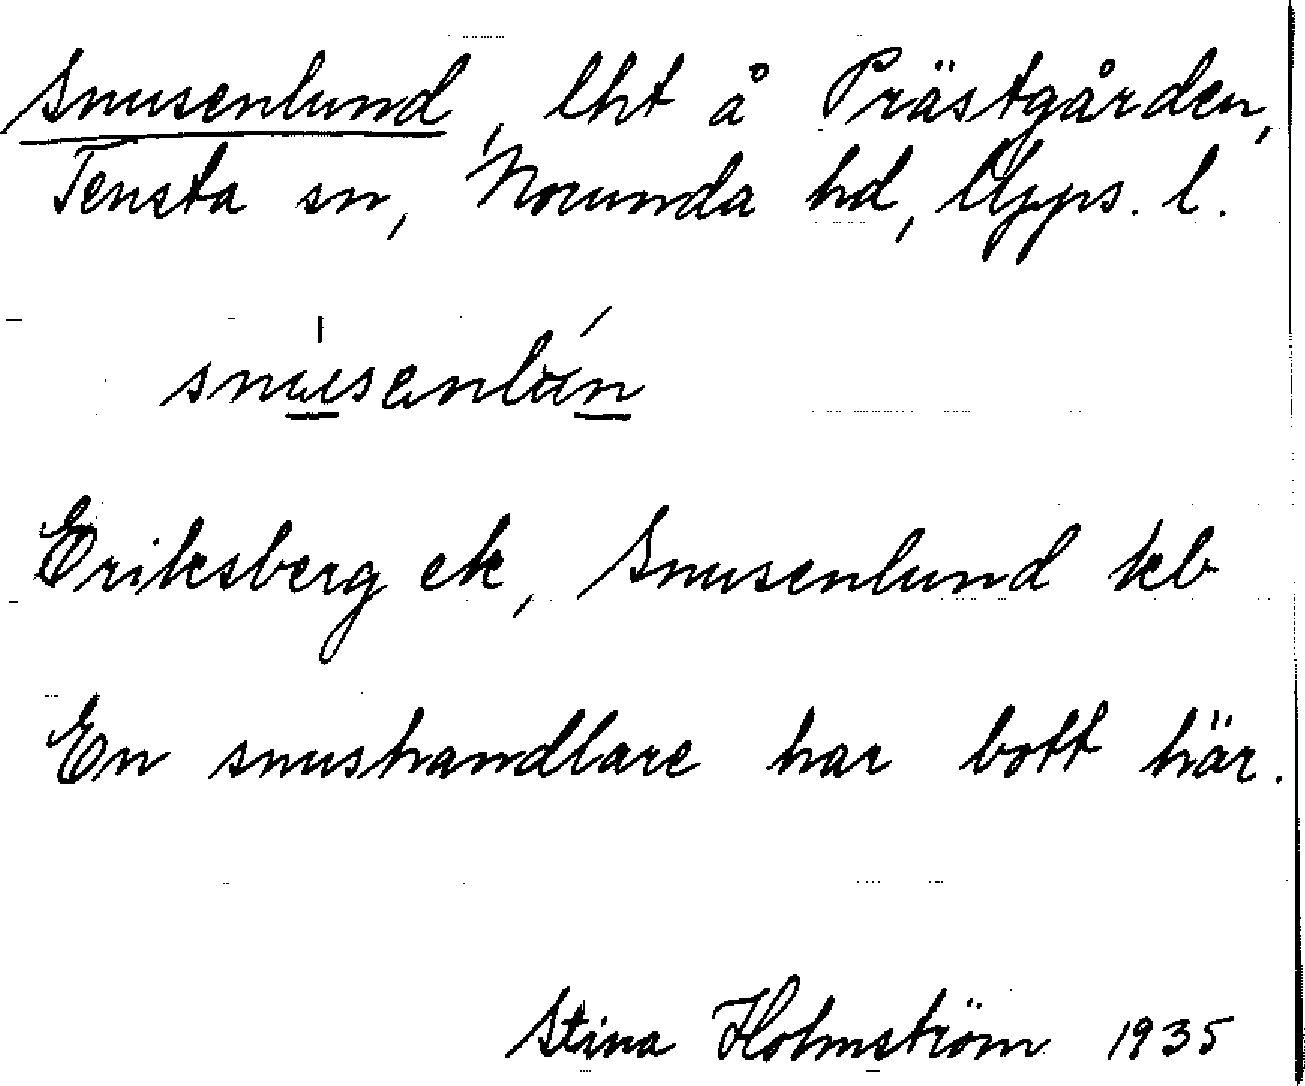 Snusenlund, lht å Prästgården,
Tensta sn, Norunda hd, Upps. l.
snusenlun
Eriksberg ek, Snusenlund kb
En snushandlare har bott här.
Stina Holmström 1935